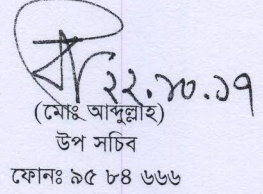 ২২.১০.১৭
(মোঃ আব্দুল্লাহ)
উপ সচিব
ফোনঃ ৯৫ ৮৪ ৬৬৬